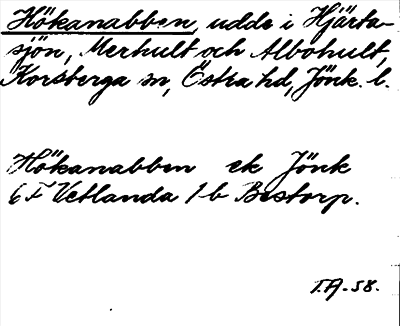 Hökanabben, udde i Hjärta-
sjön, Merhult och Albohult,
Korsberga sn, Östra hd, Jönk. l.
Hökanabben ek Jönk
6 F Vetlanda 1 b Bestorp.
T.A-58.